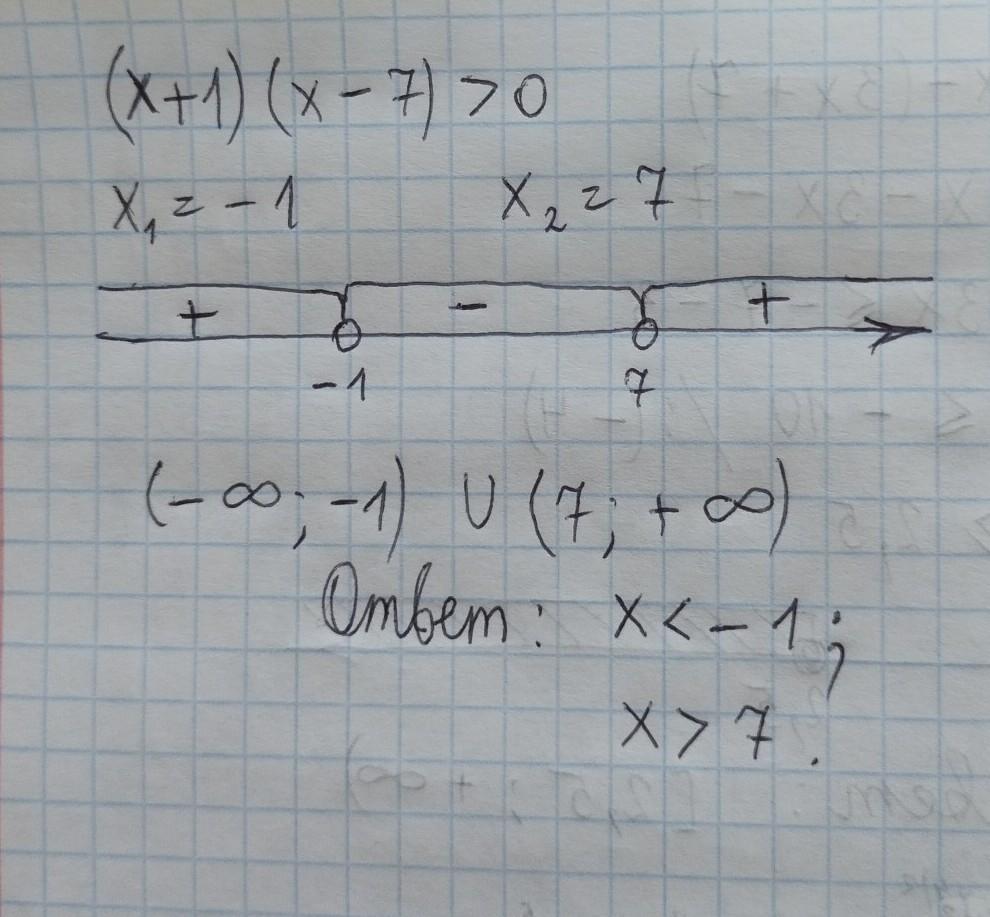 (x+1)(x-7)>0
x₁=-1 x₂=7
+ - +
-1 7
(-∞; -1) ∪ (7; +∞)
Ответ: x<-1;
x>7.